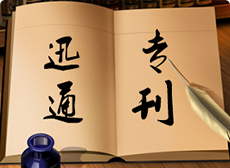 迅通
专刊